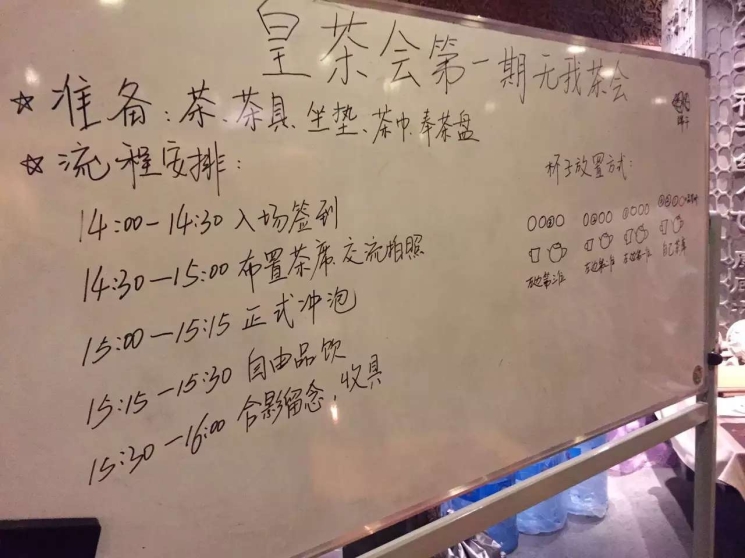 皇茶会第一期无我茶会
☆ 准备：茶、茶具、坐垫、茶巾、奉茶盘
☆ 流程安排：
14:00-14:30 入场签到
14:30-15:00 布置茶席 交流拍照
15:00-15:15 正式冲泡
15:15-15:30 自由品饮
15:30-16:00 合影留念，收具
杯子放置方式：